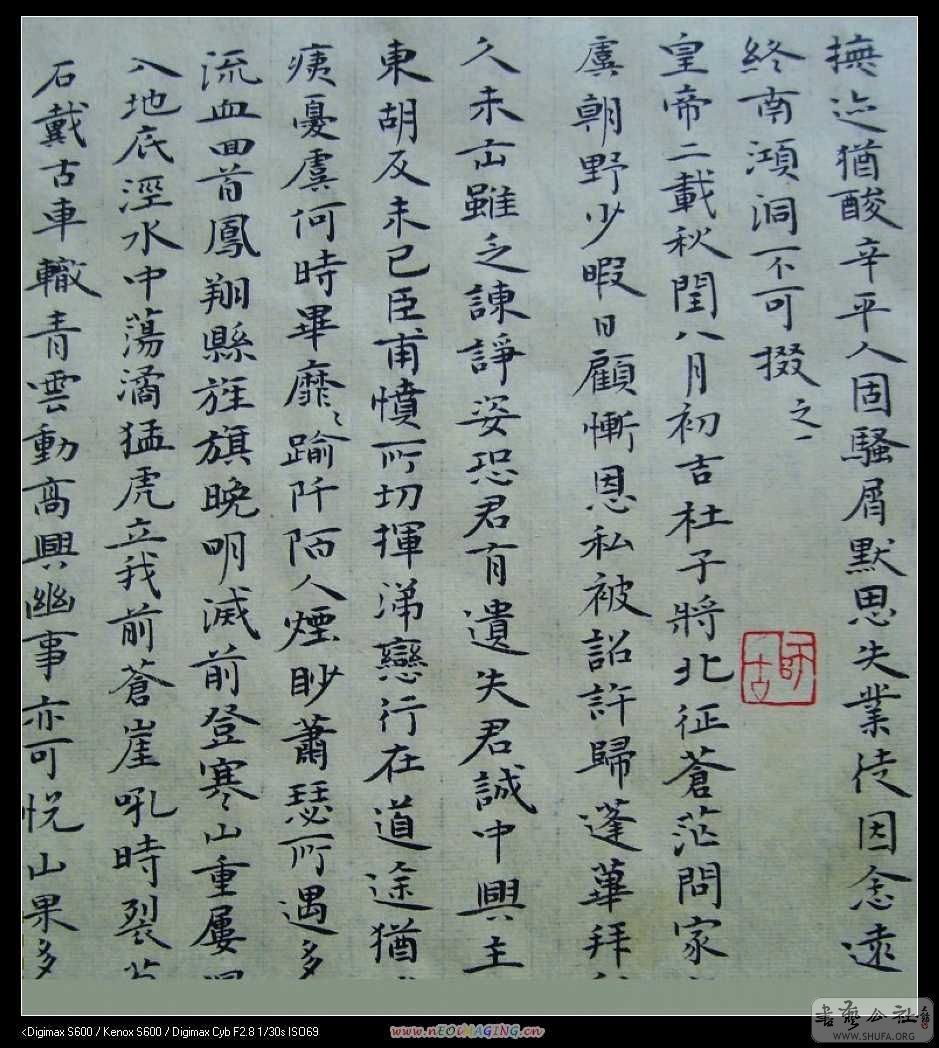 撫迹猶酸辛平人固騷屑默思失業徒因念遠
終南澒洞不可掇 之一
皇帝二載秋閏八月初吉杜子將北征蒼茫問家
虞朝野少暇日顧慚恩私被詔許歸蓬蓽拜
久未出雖乏諫諍姿恐君有遺失君誠中興主
東胡反未已臣甫憤所切揮涕戀行在道途猶
痍憂虞何時畢靡〻踰阡陌人煙眇蕭瑟所遇多
流血回首鳳翔縣旌旗晚明滅前登寒山重屢
入地底涇水中蕩潏猛虎立我前蒼崖吼時裂
石戴古車轍青雲動高興幽事亦可悅山果多
師古
<Digimax S600 / Kenox S600 / Digimax Cyb F2.8 1/30s ISO69
www.nEOiMAGING.cn
書藝公社
WWW.SHUFA.ORG